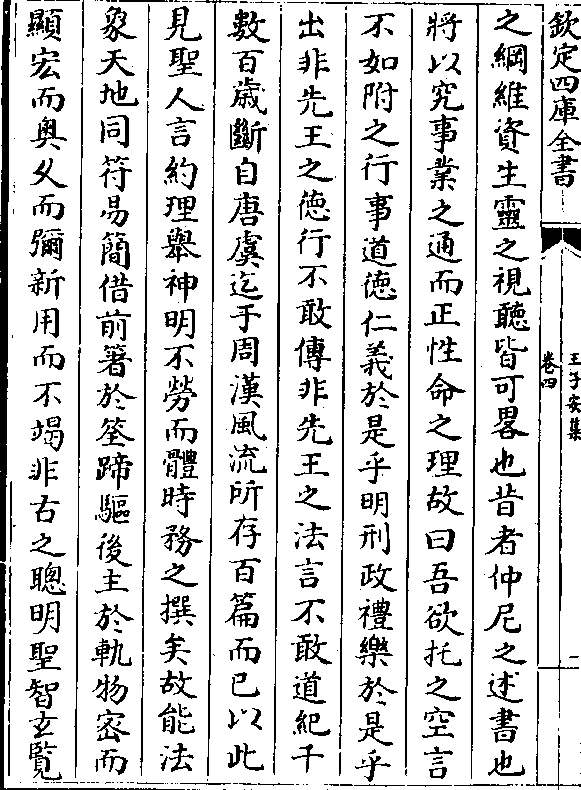 欽定四庫全書
王子安集
卷四
之綱維資生靈之視聽皆可畧也昔者仲尼之述書也
將以究事業之通而正性命之理故曰吾欲托之空言
不如附之行事道徳仁義於是乎明刑政禮樂於是乎
出非先王之徳行不敢傳非先王之法言不敢道紀千
數百歳斷自唐虞迄乎周漢風流所存百篇而已以此
見聖人言約理舉神明不勞而體時務之撰矣故能法
象天地同符易簡借前箸於筌蹄驅後主於軌物宻而
顯宏而奥乆而彌新用而不竭非古之聰明聖智玄覽